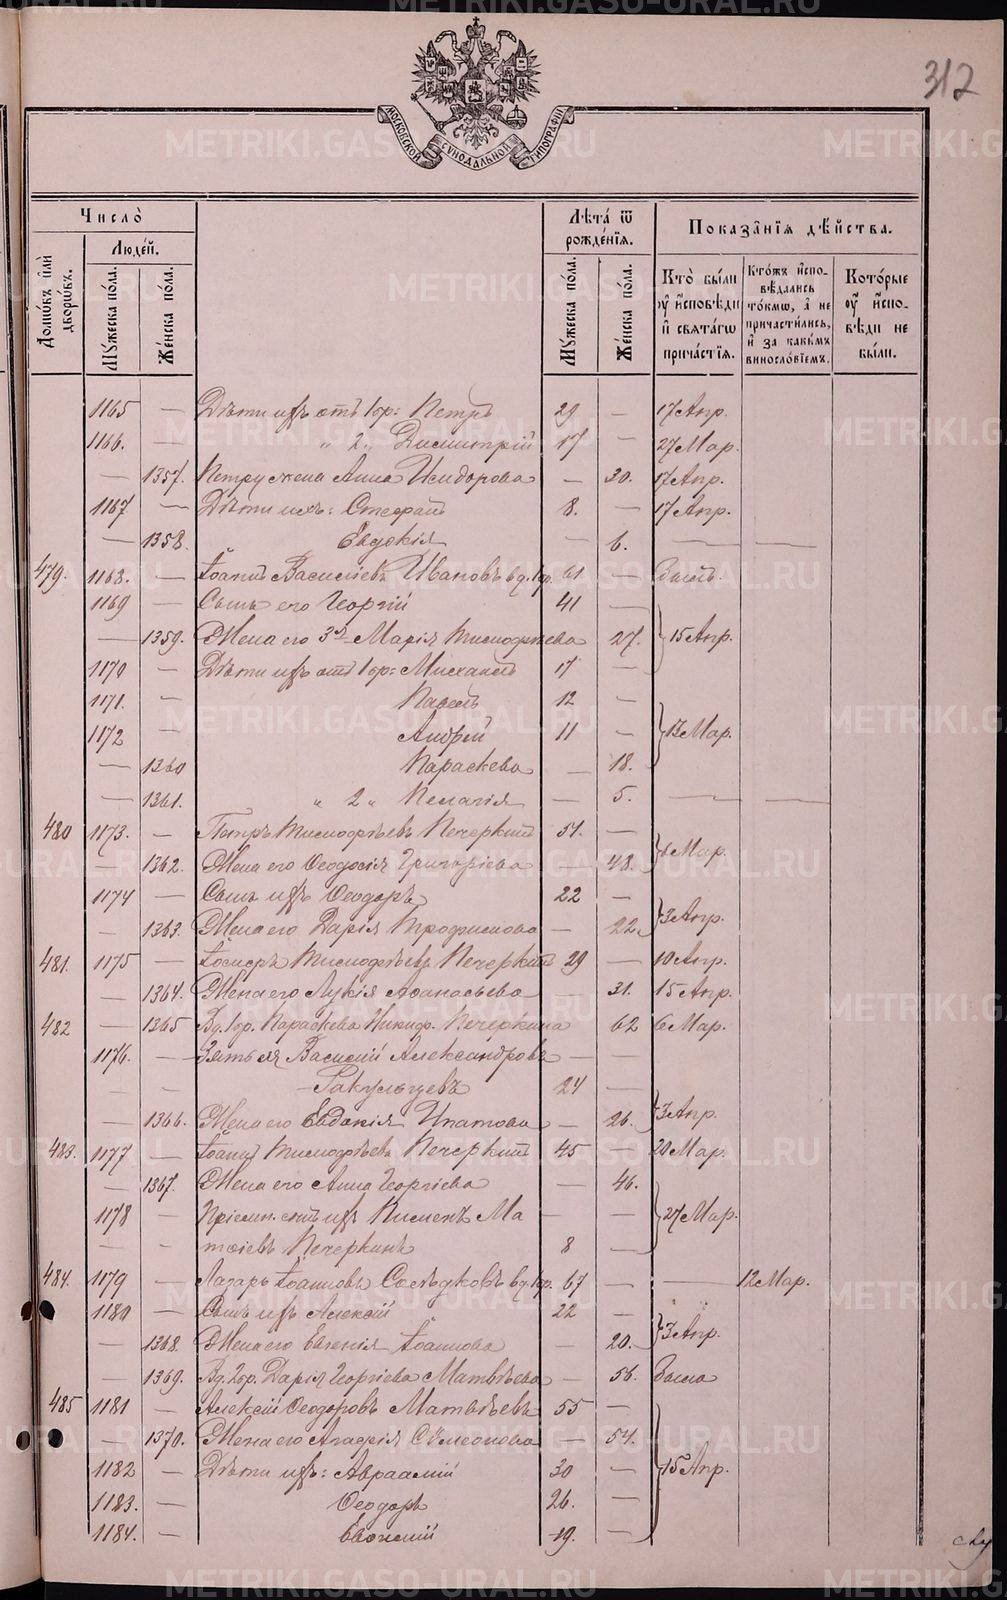 312
МОСКОВСКОЙ СѴНОДАЛЬНОЙ ТИПОГРАФІИ
Число̀
Людей.
Домѡвъ и҆лѝ дворѡвъ.
Мꙋжеска по́ла.
Же́нска по́ла.
Лѣ́та ѿ рожде́нїѧ.
Мꙋжеска по́ла.
Же́нска по́ла.
Показа́нїѧ дѣ́йства.
Кто̀ бы́ли ᲂу҆ и҆спо́вѣди и҆ свѧта́гѡ прича́стїѧ.
Кто́жъ и҆спо-
вѣ́дались то́кмѡ, а҆ не причасти́лись, и҆ за каки́мъ винословїемъ.
Кото́рые ᲂу҆ и҆спо-
вѣди не бы́ли.
1165 — Дѣти ихъ отъ 1 бр: Петръ 29 — 17 Апр.
1166. — „ 2 „ Димитрій 17 — 27 Мар.
— 1357. Петру жена Анна Исидорова — 30. 17 Апр.
1167 — Дѣти ихъ: Стефанъ 8. — 17 Апр.
— 1358. Евдокія — 6. — —
479. 1168. — Іоаннъ Васильевъ Ивановъ вд. 1 бр. 61 — Былъ.
1169 — Сынъ его Георгій 41 —
— 1359. Жена его 3я Марія Тимофѣева 27. 15 Апр.
1170 — Дѣти ихъ отъ 1 бр: Михаилъ 17 —
1171. — Павелъ 12 —
1172 — Андрей 11 — 13 Мар.
— 1360 Параскева — 18.
— 1361. „ 2 „ Пелагія — 5. — —
480 1173. — Петръ Тимофѣевъ Печеркинъ 51. —
— 1362. Жена его Ѳеодосія Григоріева — 48. 6 Мар.
1174 — Сынъ ихъ Ѳеодоръ 22 —
— 1363. Жена его Дарія Трофимова — 22. 3 Апр.
481. 1175 — Тимофѣевъ Печеркинъ 29 — 10 Апр.
— 1364. Жена его Лукія Аѳанасьева — 31. 15 Апр.
482 — 1365 Вд. 1 бр. Параскева Никиф. Печеркина 62 6 Мар.
1176. — Зять ея Василій Александровъ — —
— — Ракульцевъ 24 —
— 1366. Жена его Евдокія Ипатова — 26. 3 Апр.
483. 1177 — Іоаннъ Тимофѣевъ Печеркинъ 45 — 20 Мар.
— 1367. Жена его Анна Георгіева — 46.
1178 — Пріемн. сынъ ихъ Пименъ Ма — — 27 Мар.
— — тѳіевъ Печеркинъ 8 —
484. 1179 — Лазарь Іоанновъ Сосѣдковъ вд. 1 бр. 67 — — 12 Мар.
1180 — Сынъ ихъ Алексій 22 —
— 1368. Жена его Евгенія Іоаннова 20. 3 Апр.
— 1369. Вд. 2 бр. Дарія Георгіева Матвѣева — 56. Была
485 1181 — Алексій Ѳеодоровъ Матвѣевъ 55 —
— 1370. Жена его Агафія Сѵмеонова — 54.
1182 — Дѣти ихъ: Авраамій 30 — 15 Апр.
1183. — Ѳеодоръ 26. —
1184. — Евѳимій 19. —
METRIKI.GASO-URAL.RU